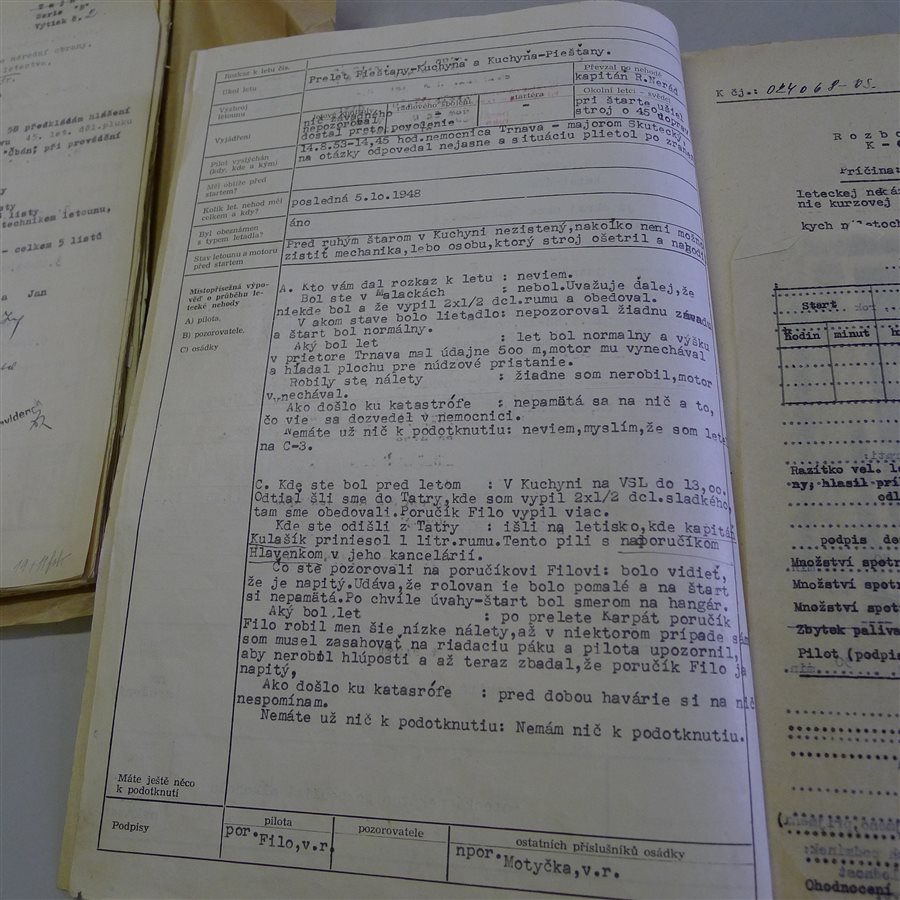 Serie "D"
Výtisk č. 2
národní obrany,
letectva,
50 předkládám hlášení
45. let. děl.pluku
při provádění
listy
technikem letounu,
- celkem 5 listů
a Jan
Rozkaz k letu čís.
Úkol letu
Prelet Piešťany-Kuchyňa a Kuchyňa-Piešťany.
Převzal po nehodě
kapitán R.Nerád
Výzbroj
letounu
startéra
-
Okolní letci - svědci
pri štarte ušiel
stroj o 45° doprav
Vyjádření
nič závadného
nepozoroval
dostal preto povolenie
Pilot vyslýchán
(kdy, kde a kým)
14.8.53-14,45 hod.nemocnica Trnava - majorom Skutecký,
na otázky odpovedal nejasne a situáciu plietol po zranení
Měl obtíže před
startem?
Kolik let. nehod měl
celkem a kdy?
posledná 5.10.1948
Byl obeznámen
s typem letadla?
áno
Stav letounu a motoru
před startem
Pred ruhým štarom v Kuchyni nezistený,nakoľko neni možno
zistiť mechanika,lebo osobu,ktorý stroj ošetril a nahodil
Místopřísežná výpo-
věď o průběhu le-
tecké nehody
A) pilota,
B) pozorovatele,
C) osádky
A. Kto vám dal rozkaz k letu : neviem.
Bol ste v Malackách : nebol.Uvažuje ďalej,že
niekde bol a že vypil 2x1/2 dcl.rumu a obedoval.
V akom stave bolo lietadlo: nepozoroval žiadnu závadu
a štart bol normálny.
Aký bol let : let bol normalny a výšku
v prietore Trnava mal údajne 500 m,motor mu vynechával
a hľadal plochu pre núdzové pristanie.
Robily ste nálety : žiadne som nerobil,motor
vynechával.
Ako došlo ku katastrófe : nepamätá sa na nič a to,
čo vie sa dozvedel v nemocnici.
Nemáte už nič k podotknutiu: neviem,myslím,že som letel
na C-3.
C. Kde ste bol pred letom : V Kuchyni na VSL do 13,oo.
Odtiaľ šli sme do Tatry,kde som vypil 2x1/2 dcl.sladkého,
tam sme obedovali.Poručík Filo vypil viac.
Kde ste odišli z Tatry : išli na letisko,kde kapitán
Kulašík priniesol 1 litr.rumu.Tento pili s naporučíkom
Hlavenkom v jeho kancelárií.
Čo ste pozorovali na poručíkovi Filovi: bolo vidieť,
že je napitý.Udáva,že rolovan ie bolo pomalé a na štart
si nepamätá.Po chvíle úvahy-štart bol smerom na hangár.
Aký bol let : po prelete Karpát poručík
Filo robil men šie nízke nálety,až v niektorom prípade sám
som musel zasahovať na riadaciu páku a pilota upozornil,
aby nerobil hlúposti a až teraz zbadal,že poručík Filo je
napitý,
Ako došlo ku katasrófe : pred dobou havárie si na nič
nespomínam.
Nemáte už nič k podotknutiu: Nemám nič k podotknutiu.
Máte ještě něco
k podotknutí
Podpisy
pilota
por.Filo,v.r.
pozorovatele
ostatních příslušníků osádky
npor.Motyčka,v.r.
K čj.: 024068-
Rozbo
K -
Príčina:
leteckej neká
nie kurzovej
Start
hodin
minut
Razítko vel. l
ny, hlasil prí
podpis
Množství spotr
Množství spotr
Množství spot
Zbytek paliva
Pilot (podpis
Ohodnocení